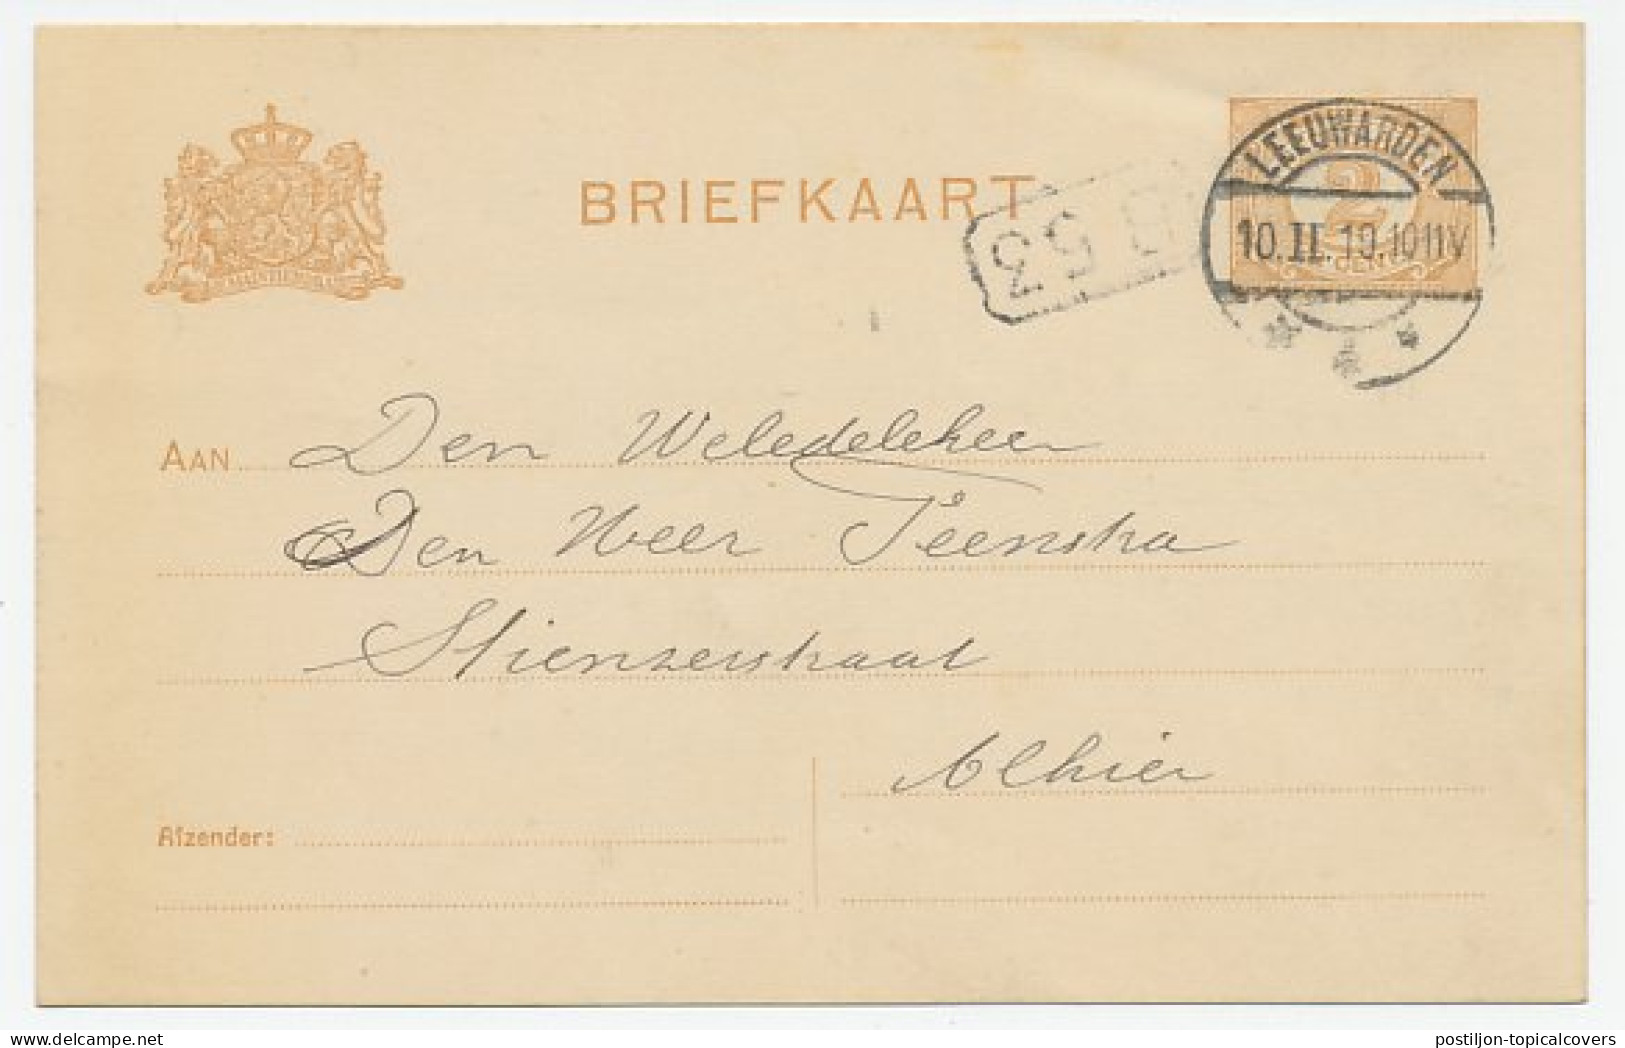 BRIEFKAART
LEEUWARDEN
10.II.19.1011V
2
CENT
AAN
Den Weledeleheer
Den Heer Teenstra
Stienserstraat
Alhier
Afzender:
postiljon-topicalcovers